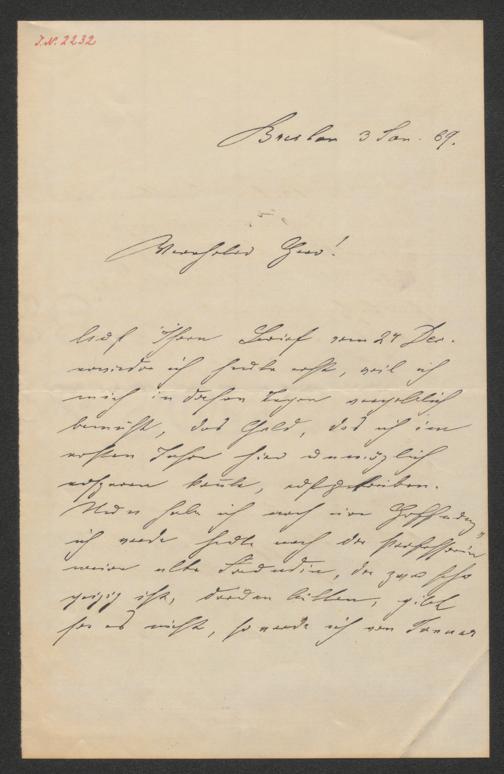 J.N. 2232
Breslau 3 Jan. 69.
Verehrter Herr!
Auf Ihren Brief vom 24 Dec.
erwiedre ich heute erst, weil ich
mich in diesen Tagen vergeblich
bemüht, das Geld, das ich im
ersten Jahre hier unmöglich
ersparen konnte, aufzutreiben.
Nun habe ich noch eine Hoffnung,
ich werde heute noch die Professorin
meine alte Freundin, die zwar sehr
geizig ist, darum bitten, gibt
sie es nicht, so werde ich von